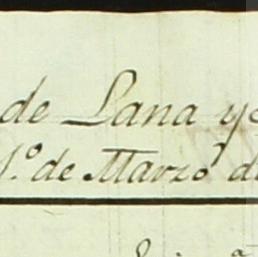 de Lana y
1.º de Marzo d